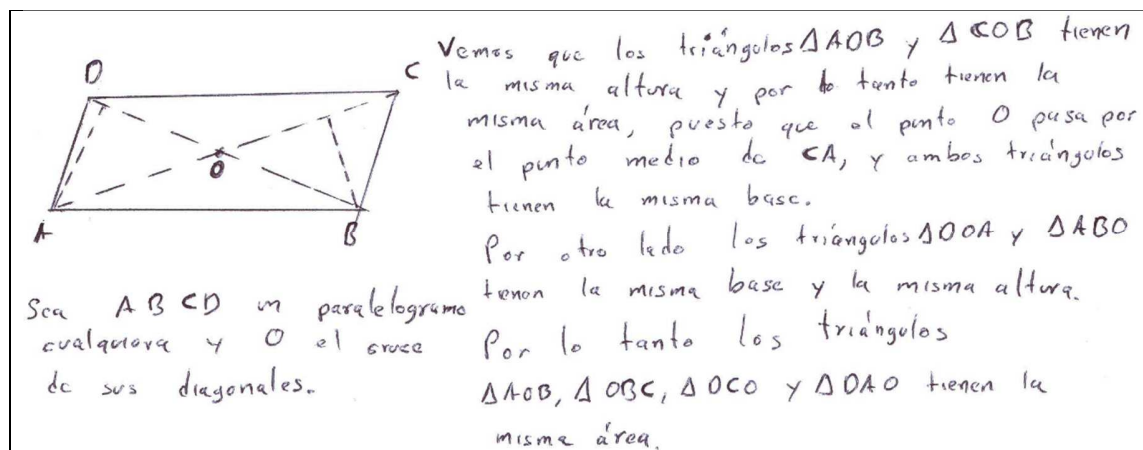 D
C
O
A
B
Sea ABCD un paralelogramo
cualquiera y O el cruce
de sus diagonales.
Vemos que los triángulos ΔAOB y ΔCOB tienen
la misma altura y por lo tanto tienen la
misma área, puesto que el punto O pasa por
el punto medio de CA, y ambos triángulos
tienen la misma base.
Por otro lado los triángulos ΔDOA y ΔABO
tienen la misma base y la misma altura.
Por lo tanto los triángulos
ΔAOB, ΔOBC, ΔOCD y ΔDAO tienen la
misma área.